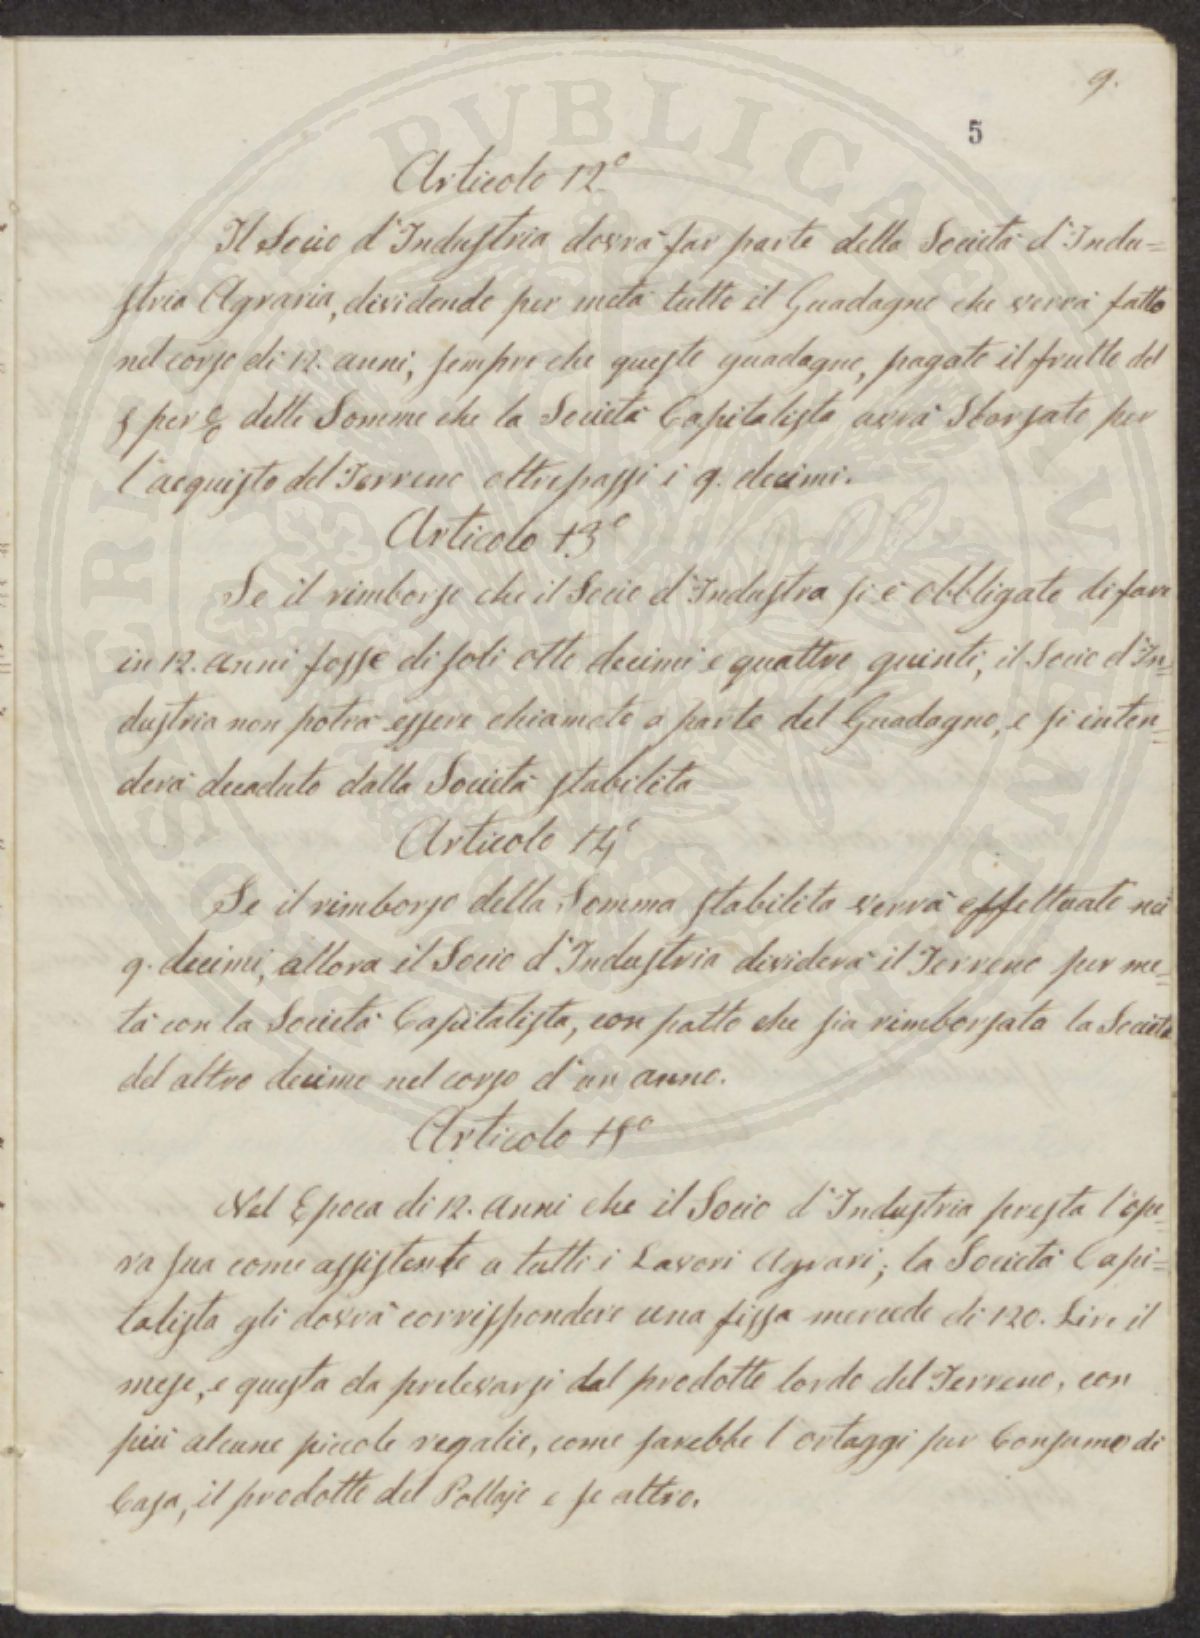 9.
5
Articolo 12°
Il Socio d'Industria dovrà far parte della Società d'Indu=
stria Agraria, dividendo per metà tutto il Guadagno che verrà fatto
nel corso di 12. anni, sempre che questo guadagno, pagato il frutto del
5 per % delle Somme che la Società Capitalista avrà Sborsato per
l'acquisto del Terreno oltrepassi i 9. decimi.
Articolo 13°
Se il rimborso che il Socio d'Industra si è obbligato di fare
in 12. anni fosse di soli otto decimi e quattro quinti, il Socio d'In=
dustria non potrà essere chiamato a parte del Guadagno, e si inten=
derà decaduto dalla Società stabilita
Articolo 14°
Se il rimborso della Somma stabilita verrà effettuato nei
9. decimi, allora il Socio d'Industria dividerà il Terreno per me=
tà con la Società Capitalista, con patto che sia rimborsata la Società
del altro decimo nel corso d'un anno.
Articolo 15°
Nel Epoca di 12. anni che il Socio d'Industria presta l'ope=
ra sua come assistente a tutti i Lavori Agrari; la Società Capi=
talista gli dovrà corrisspondere una fissa mercede di 120. Lire il
mese, e questa da prelevarsi dal prodotto lordo del Terreno, con
più alcune piccole regalie, come sarebbe l'ortaggi per Consumo di
Casa, il prodotto del Pollajo e se altro.